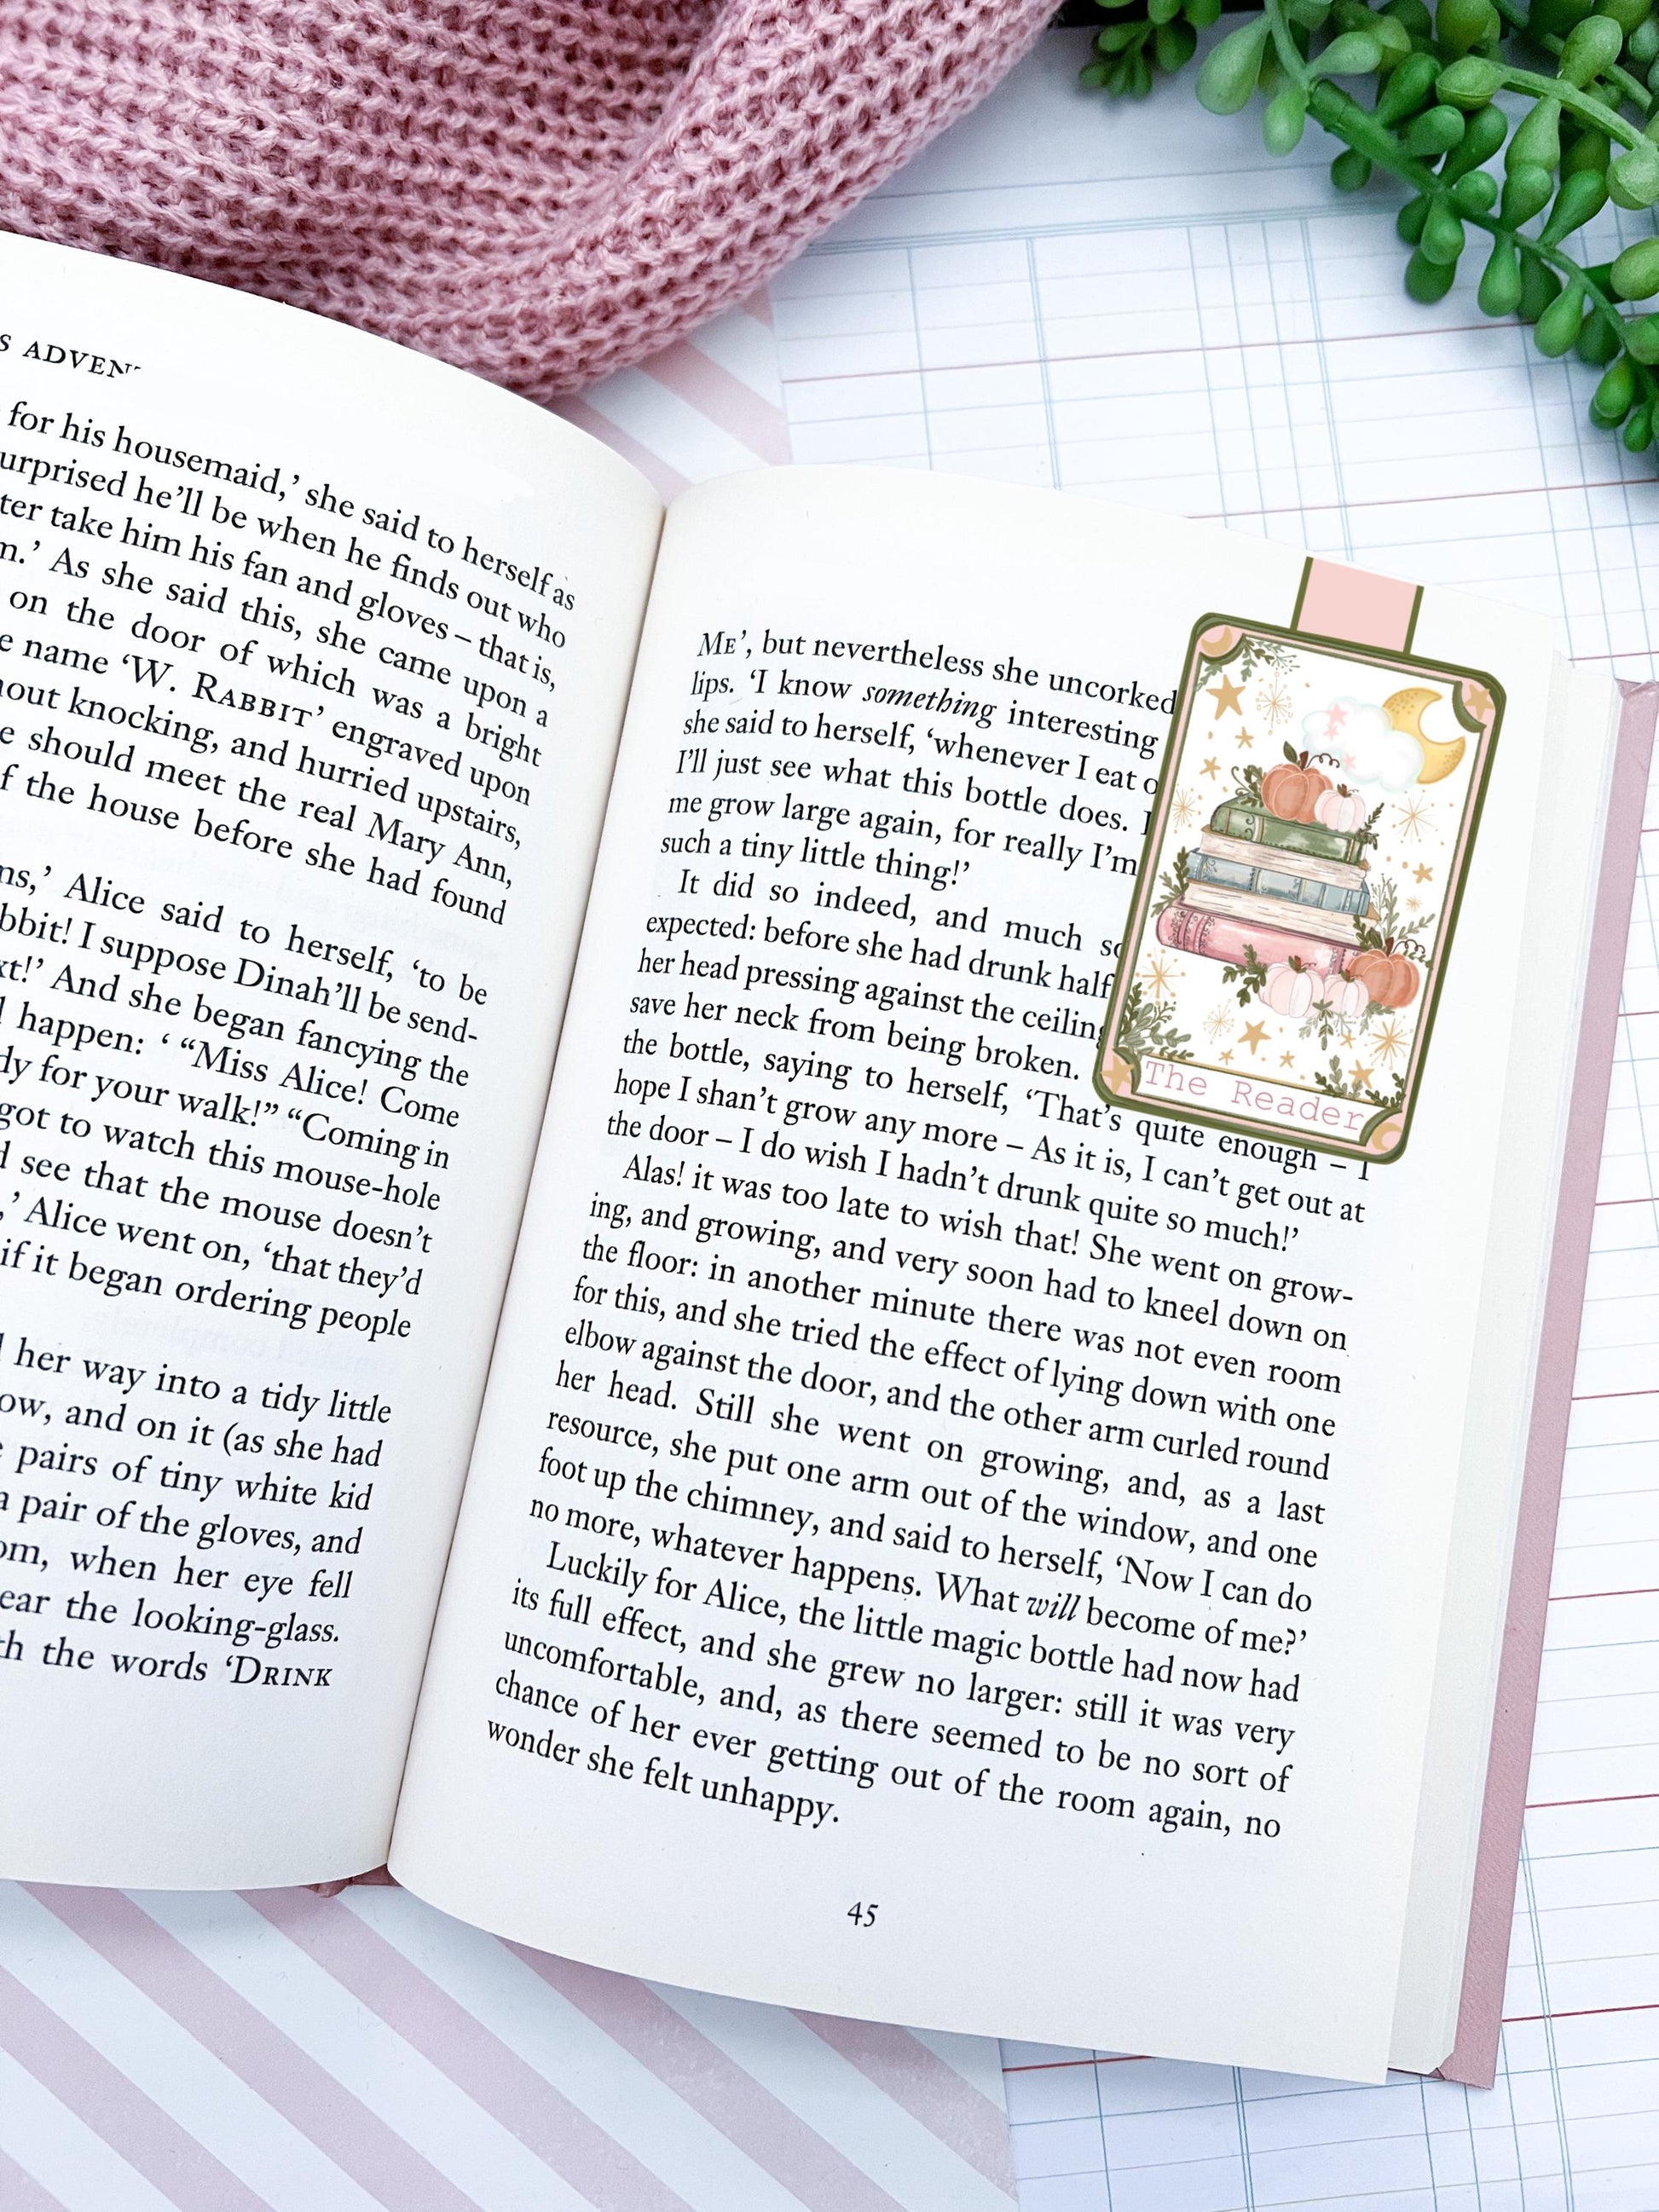 ADVEN
for his housemaid,’ she said to herself as
he’ll be when he finds out who
take him his fan and gloves – that is,
As she said this, she came upon a
on the door of which was a bright
name ‘W. RABBIT’ engraved upon
knocking, and hurried upstairs,
should meet the real Mary Ann,
the house before she had found
Alice said to herself, ‘to be
I suppose Dinah’ll be send-
And she began fancying the
happen: ‘ “Miss Alice! Come
for your walk!” “Coming in
got to watch this mouse-hole
see that the mouse doesn’t
Alice went on, ‘that they’d
if it began ordering people
her way into a tidy little
and on it (as she had
pairs of tiny white kid
a pair of the gloves, and
when her eye fell
the looking-glass.
the words ‘DRINK
ME’, but nevertheless she uncorked
lips. ‘I know something interesting
she said to herself, ‘whenever I eat
I’ll just see what this bottle does.
me grow large again, for really I’m
such a tiny little thing!’
It did so indeed, and much
expected: before she had drunk half
her head pressing against the ceiling
save her neck from being broken.
the bottle, saying to herself, ‘That’s quite enough – I
hope I shan’t grow any more – As it is, I can’t get out at
the door – I do wish I hadn’t drunk quite so much!’
Alas! it was too late to wish that! She went on grow-
ing, and growing, and very soon had to kneel down on
the floor: in another minute there was not even room
for this, and she tried the effect of lying down with one
elbow against the door, and the other arm curled round
her head. Still she went on growing, and, as a last
resource, she put one arm out of the window, and one
foot up the chimney, and said to herself, ‘Now I can do
no more, whatever happens. What will become of me?’
Luckily for Alice, the little magic bottle had now had
its full effect, and she grew no larger: still it was very
uncomfortable, and, as there seemed to be no sort of
chance of her ever getting out of the room again, no
wonder she felt unhappy.
45
The Reader